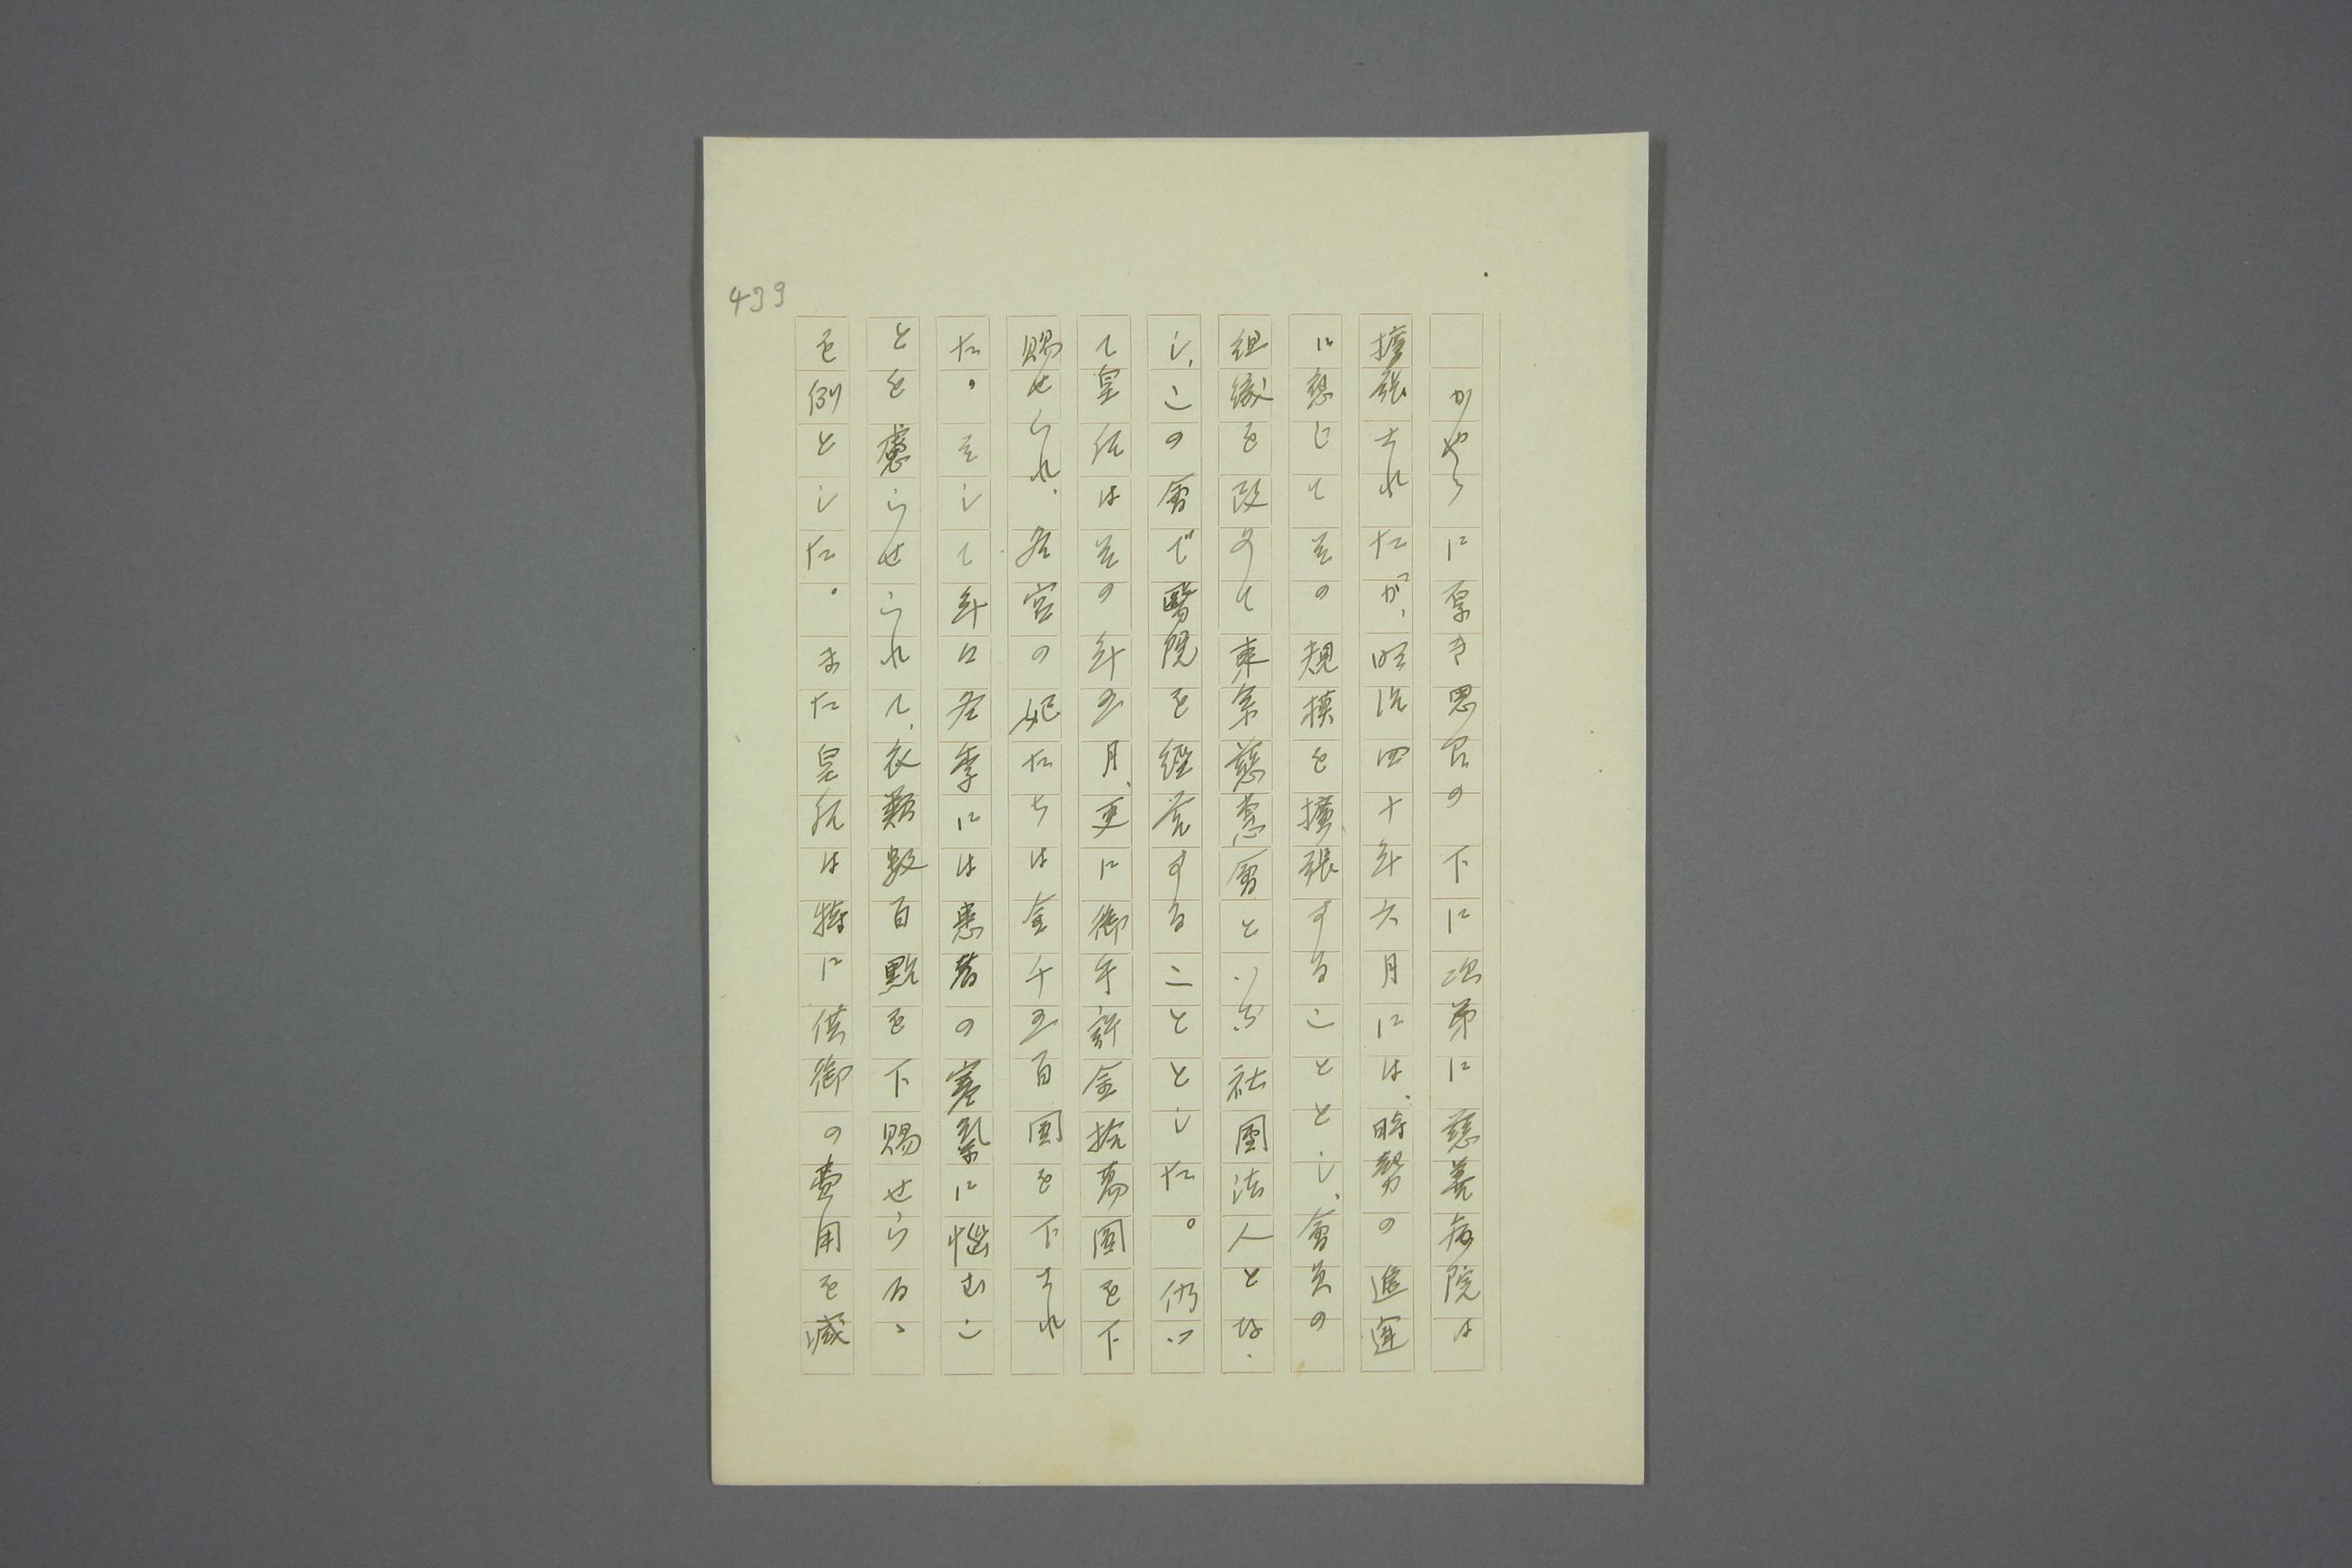 439
かやうに厚き思召の下に次第に慈善病院は
擴張されたが、明治四十年六月には、時勢の進運
に應じてその規模を擴張することとし、會員の
組織を改めて東京慈惠會といふ社團法人とな
し、この會で醫院を經營することとした。仍つ
て皇后はその年五月、更に御手許金拾萬圓を下
賜せられ、各宮の妃たちは金千五百圓を下され
た。そして年々冬季には患者の寒氣に惱むこ
とを慮らせられて、衣類數百點を下賜せらるゝ
を例とした。また皇后は特に供御の費用を減